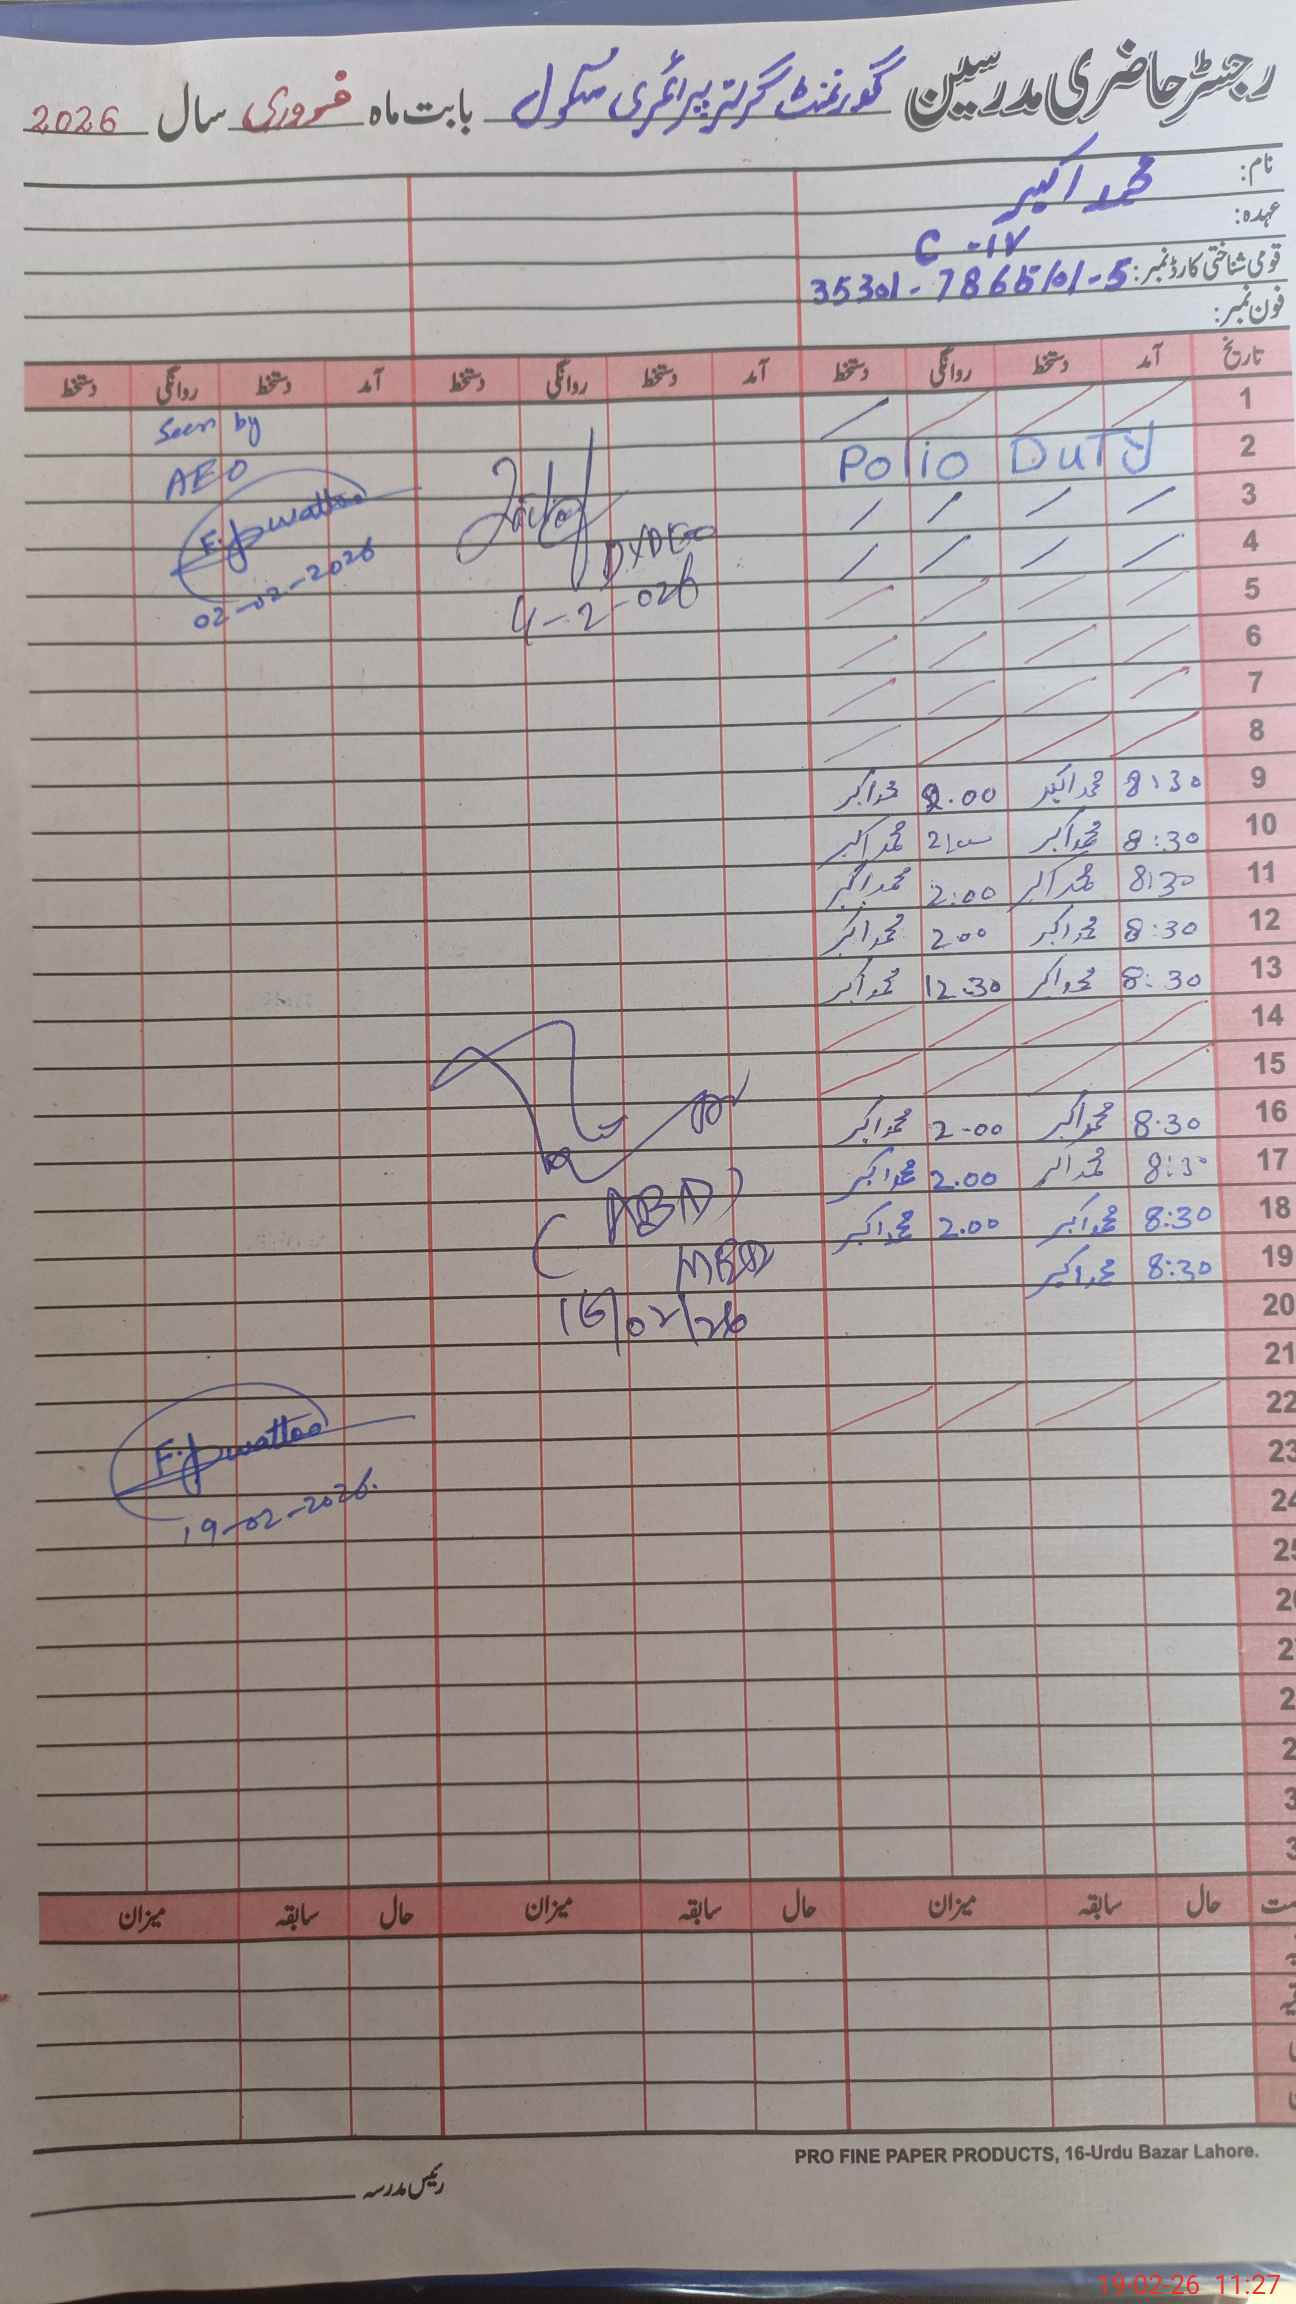 رجسٹر حاضری مدرسین گورنمنٹ گرلز پرائمری سکول بابت ماہ فروری سال 2026
نام: محمد اکبر
عہدہ: C-IV
قومی شناختی کارڈ نمبر: 35301-7865101-5
فون نمبر:
تاریخ آمد دستخط روانگی دستخط آمد دستخط روانگی دستخط آمد دستخط روانگی دستخط
1
2 Polio Duty
3
4
5
6
7
8
9 8:30 محمد اکبر 2.00 محمد اکبر
10 8:30 محمد اکبر 2:00 محمد اکبر
11 8:30 محمد اکبر 2:00 محمد اکبر
12 8:30 محمد اکبر 2:00 محمد اکبر
13 8:30 محمد اکبر 12:30 محمد اکبر
14
15
16 8:30 محمد اکبر 2-00 محمد اکبر
17 8:30 محمد اکبر 2.00 محمد اکبر
18 8:30 محمد اکبر 2.00 محمد اکبر
19 8:30 محمد اکبر
20
21
22
23
24
25
2
2
2
2
3
3
DYDEO
4-2-026
(ABD)
16/02/26
Seen by
AEO
F.J wattoo
02-02-2026
F.J wattoo
19-02-2026.
حال سابقہ میزان حال سابقہ میزان حال سابقہ میزان
PRO FINE PAPER PRODUCTS, 16-Urdu Bazar Lahore.
رئیس مدرسہ
19-02-26 11:27